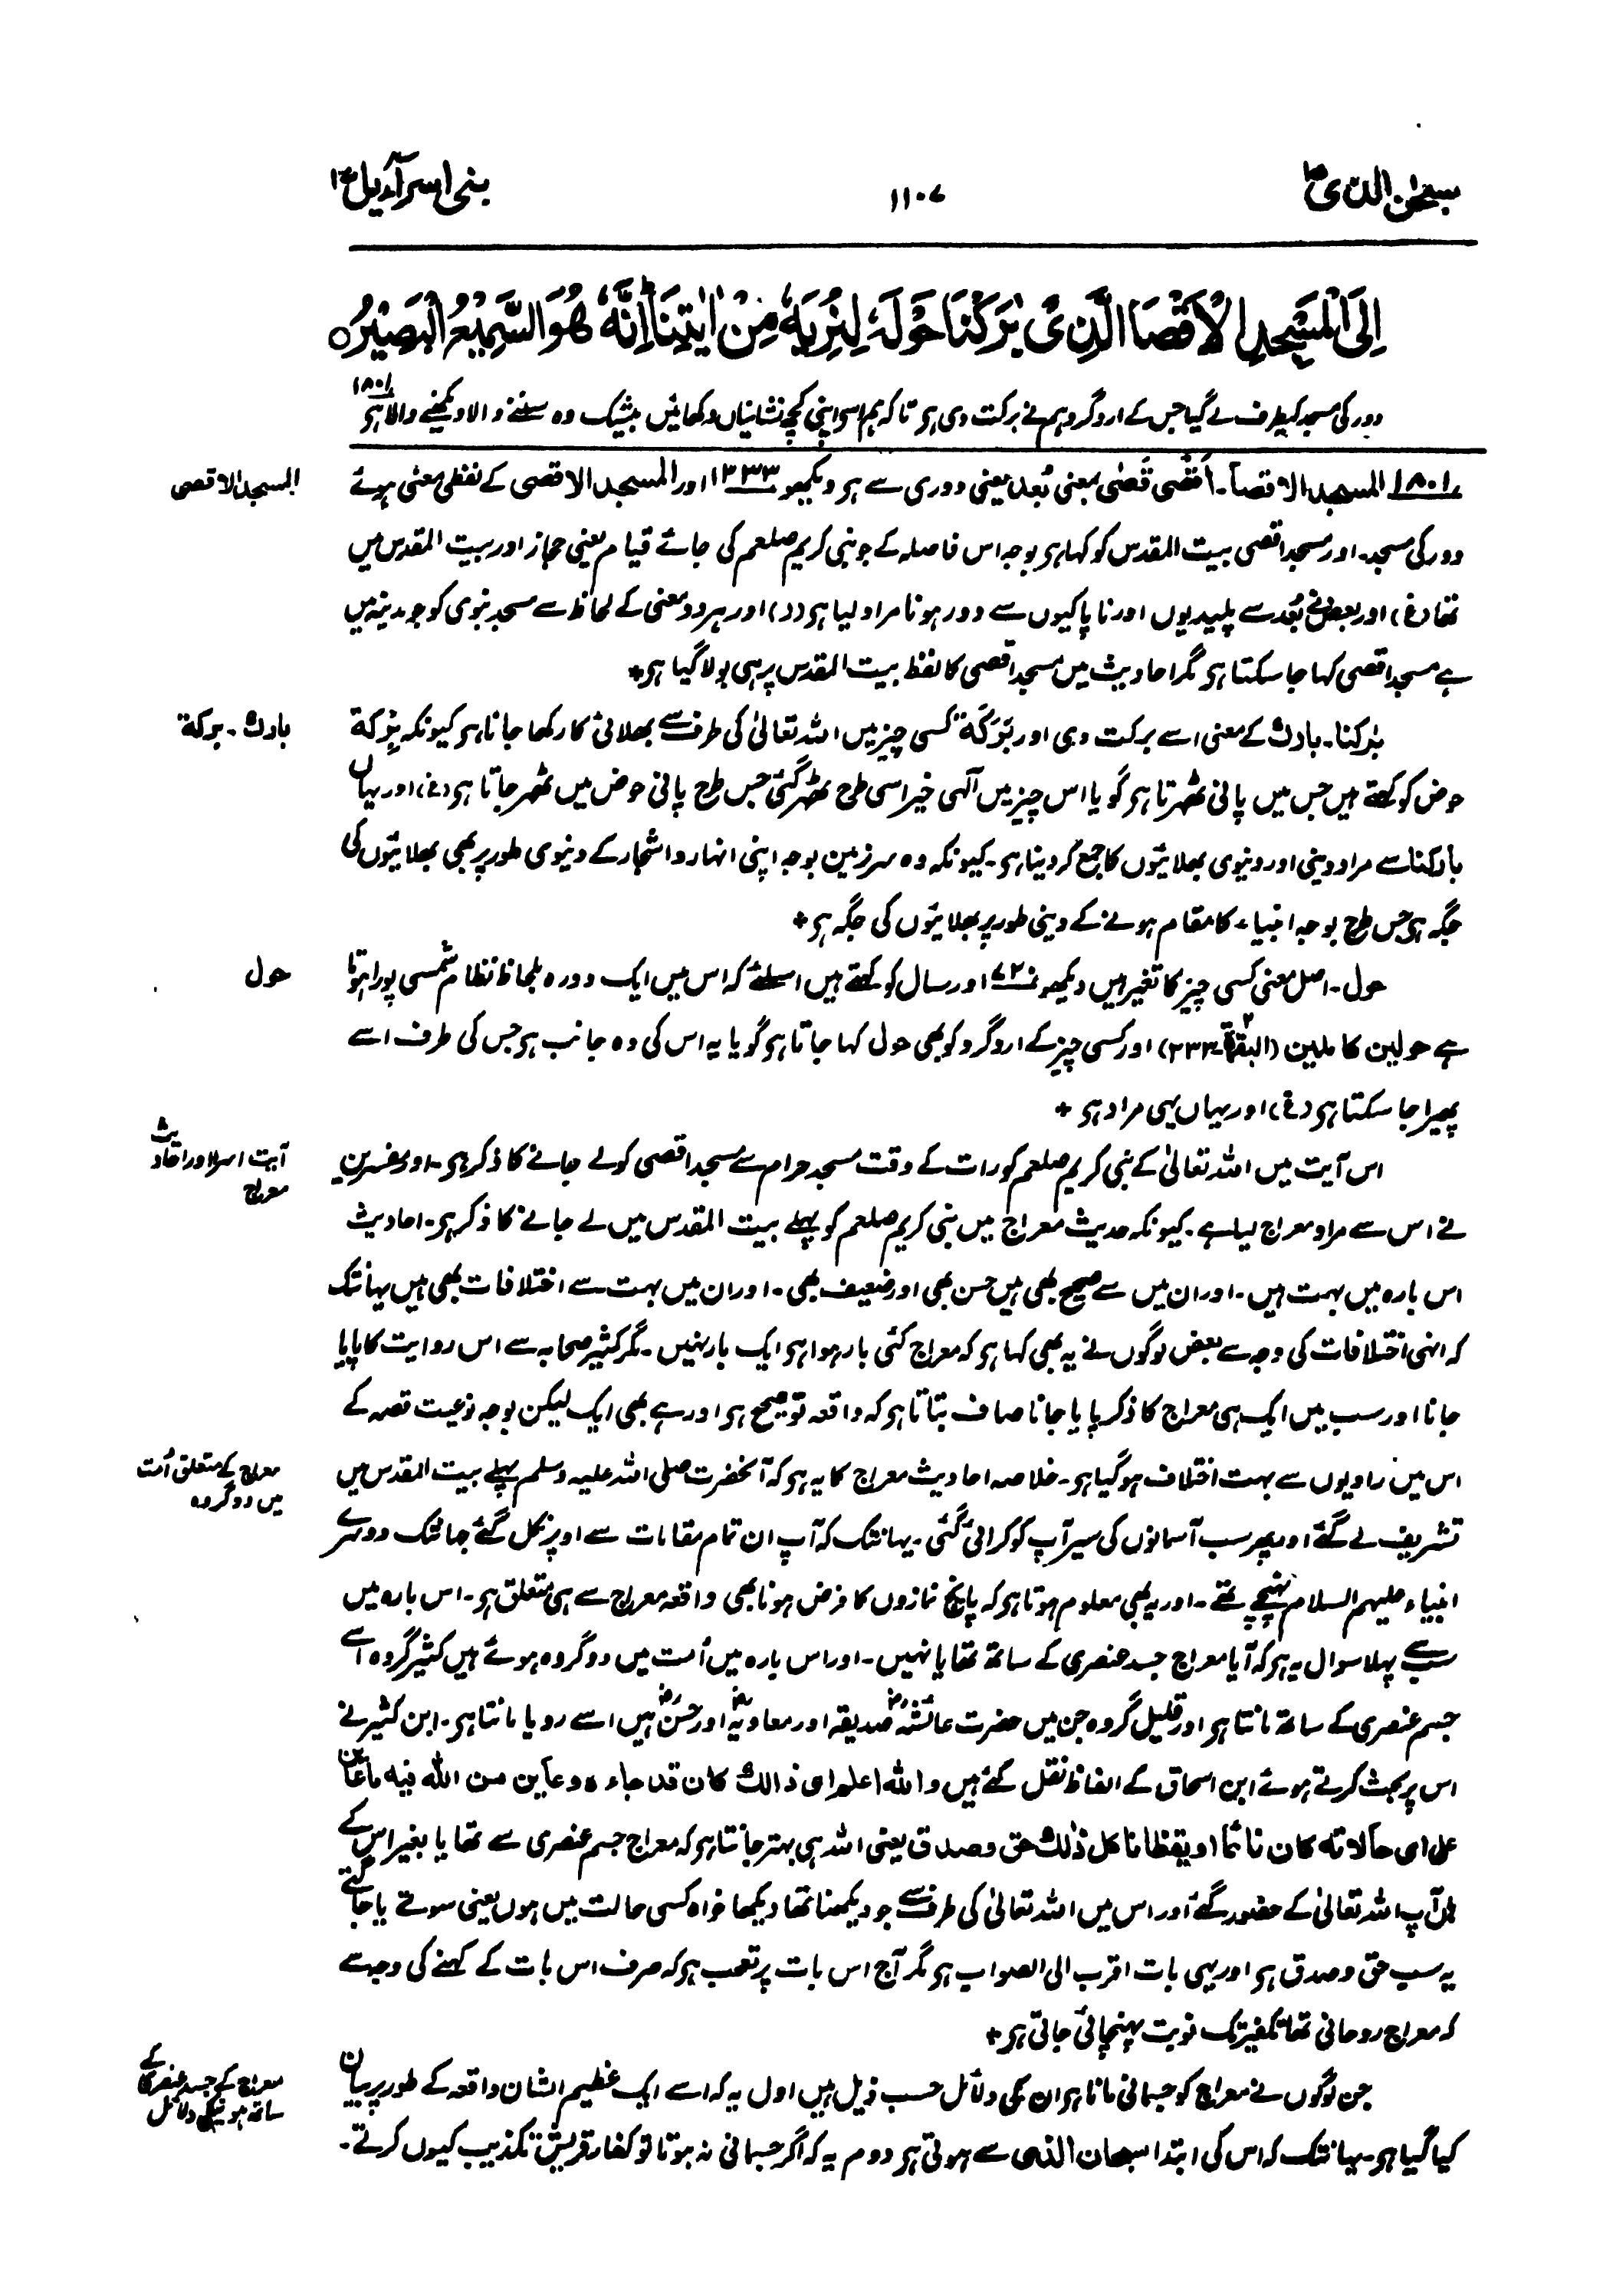 سبحٰن الذی ۱۵
۱۱۰۷
بنی اسرآءیل ۱۷
اِلَی الْمَسْجِدِ الْاَقْصَا الَّذِیْ بٰرَكْنَا حَوْلَهٗ لِنُرِیَهٗ مِنْ اٰیٰتِنَا اِنَّهٗ هُوَ السَّمِیْعُ الْبَصِیْرُ ○
دور کی مسجد کیطرف لے گیا جس کے اردگرد ہم نے برکت دی ہو تاکہ ہم اسے اپنی کچھ نشانیاں دکھائیں بیشک وہ سننے والا دیکھنے والا ہو ۱۸۰۱
۱۸۰۱ المسجد الاقصا۔ اَقْصٰی قَصٰی بمعنی بُعد یعنی دوری سے ہو دیکھو ۱۲۳۳ اور المسجد الاقصی کے لفظی معنی ہوئے
المسجد الاقصی
دور کی مسجد۔ اور مسجد اقصی بیت المقدس کو کہا ہو بوجہ اس فاصلہ کے جو نبی کریم صلعم کی جائے قیام یعنی حجاز اور بیت المقدس میں
تھا (غ) اور بعض نے بُعد سے پلیدیوں اور ناپاکیوں سے دور ہونا مراد لیا ہو (د) اور ہر دو معنی کے لحاظ سے مسجد نبوی کو جو مدینہ میں
ہے مسجد اقصی کہا جا سکتا ہو مگر احادیث میں مسجد اقصی کا لفظ بیت المقدس پر ہی بولا گیا ہو+
بٰرکنا۔ بارك کے معنی اسے برکت دی اور بَرَكَة کسی چیز میں اللہ تعالیٰ کی طرف سے بھلائی کا رکھا جانا ہو کیونکہ بِرْكة
بارك ۔ بركة
حوض کو کہتے ہیں جس میں پانی ٹھہرتا ہو گویا اس چیز میں الٰہی خیر اسی طرح ٹھہر گئی جس طرح پانی حوض میں ٹھہر جاتا ہو (غ) اور یہاں
بارکنا سے مراد دینی اور دنیوی بھلائیوں کا جمع کر دینا ہو۔ کیونکہ وہ سرزمین بوجہ اپنی انہار و اشجار کے دنیوی طور پر بھی بھلائیوں کی
جگہ ہو جس طرح بوجہ انبیاء کا مقام ہونے کے دینی طور پر بھلائیوں کی جگہ ہو+
حول۔ اصل معنی کسی چیز کا تغیر ہیں دیکھو اور سال کو کہتے ہیں اسلئے کہ اس میں ایک دورہ بلحاظ نظام شمسی پورا ہوتا
حول
ہے حولین کاملین (البقرة ۲۔۲۳۳) اور کسی چیز کے اردگرد کو بھی حول کہا جاتا ہو گویا یہ اس کی وہ جانب ہو جس کی طرف اسے
پھیرا جا سکتا ہو (غ) اور یہاں یہی مراد ہو+
اس آیت میں اللہ تعالیٰ کے نبی کریم صلعم کو رات کے وقت مسجد حرام سے مسجد اقصی کو لے جانے کا ذکر ہو۔ اور مفسرین
آیت اسرا اور احادیث
معراج
نے اس سے مراد معراج لیا ہے۔ کیونکہ حدیث معراج میں نبی کریم صلعم کو پہلے بیت المقدس میں لے جانے کا ذکر ہو۔ احادیث
اس بارہ میں بہت ہیں۔ اور ان میں سے صحیح بھی ہیں حسن بھی اور ضعیف بھی۔ اور ان میں بہت سے اختلافات بھی ہیں یہانتک
کہ انہی اختلافات کی وجہ سے بعض لوگوں نے یہ بھی کہا ہو کہ معراج کئی بار ہوا ہو ایک بار نہیں۔ مگر کثیر صحابہ سے اس روایت کا پایا
جانا اور سب میں ایک ہی معراج کا ذکر پایا جانا صاف بتاتا ہو کہ واقعہ تو صحیح ہو اور ہے بھی ایک لیکن بوجہ نوعیت قصہ کے
اس میں راویوں سے بہت اختلاف ہوگیا ہو۔ خلاصہ احادیث معراج کا یہ ہو کہ آنحضرت صلی اللہ علیہ وسلم پہلے بیت المقدس میں
معراج کے متعلق اُمت
میں دو گروہ
تشریف لے گئے اور پھر سب آسمانوں کی سیر آپ کو کرائی گئی۔ یہانتک کہ آپ ان تمام مقامات سے اوپر نکل گئے جہانتک دوسرے
انبیاء علیہم السلام پہنچے تھے۔ اور یہ بھی معلوم ہوتا ہو کہ پانچ نمازوں کا فرض ہونا بھی واقعہ معراج سے ہی متعلق ہو۔ اس بارہ میں
سب سے پہلا سوال یہ ہو کہ آیا معراج جسد عنصری کے ساتھ تھا یا نہیں۔ اور اس بارہ میں اُمت میں دو گروہ ہوئے ہیں کثیر گروہ اسے
جسم عنصری کے ساتھ مانتا ہو اور قلیل گروہ جن میں حضرت عائشہؓ صدیقہ اور معاویہؓ اور حسنؓ ہیں اسے رویا مانتا ہو۔ ابن کثیر نے
اس پر بحث کرتے ہوئے ابن اسحاق کے الفاظ نقل کئے ہیں والله اعلم ای ذالك كان قد جاءه وعاین من الله فیه ماعاین
علی ای حالاته كان نائما او یقظانا كل ذٰلك حق وصدق یعنی اللہ ہی بہتر جانتا ہو کہ معراج جسم عنصری سے تھا یا بغیر اس کے
ہاں آپ اللہ تعالیٰ کے حضور گئے اور اس میں اللہ تعالیٰ کی طرف سے جو دیکھنا تھا دیکھا خواہ کسی حالت میں ہوں یعنی سوتے یا جاگتے
یہ سب حق و صدق ہو اور یہی بات اقرب الی الصواب ہو مگر آج اس بات پر تعجب ہو کہ صرف اس بات کے کہنے کی وجہ سے
کہ معراج روحانی تھا تکفیر تک نوبت پہنچائی جاتی ہو+
جن لوگوں نے معراج کو جسمانی مانا ہو ان کی دلائل حسب ذیل ہیں اول یہ کہ اسے ایک عظیم الشان واقعہ کے طور پر بیان
معراج کے جسد عنصری کے
ساتھ ہونیکی دلائل
کیا گیا ہو۔ یہانتک کہ اس کی ابتدا سبحان الذی سے ہوتی ہو دوم یہ کہ اگر جسمانی نہ ہوتا تو کفار قریش تکذیب کیوں کرتے۔